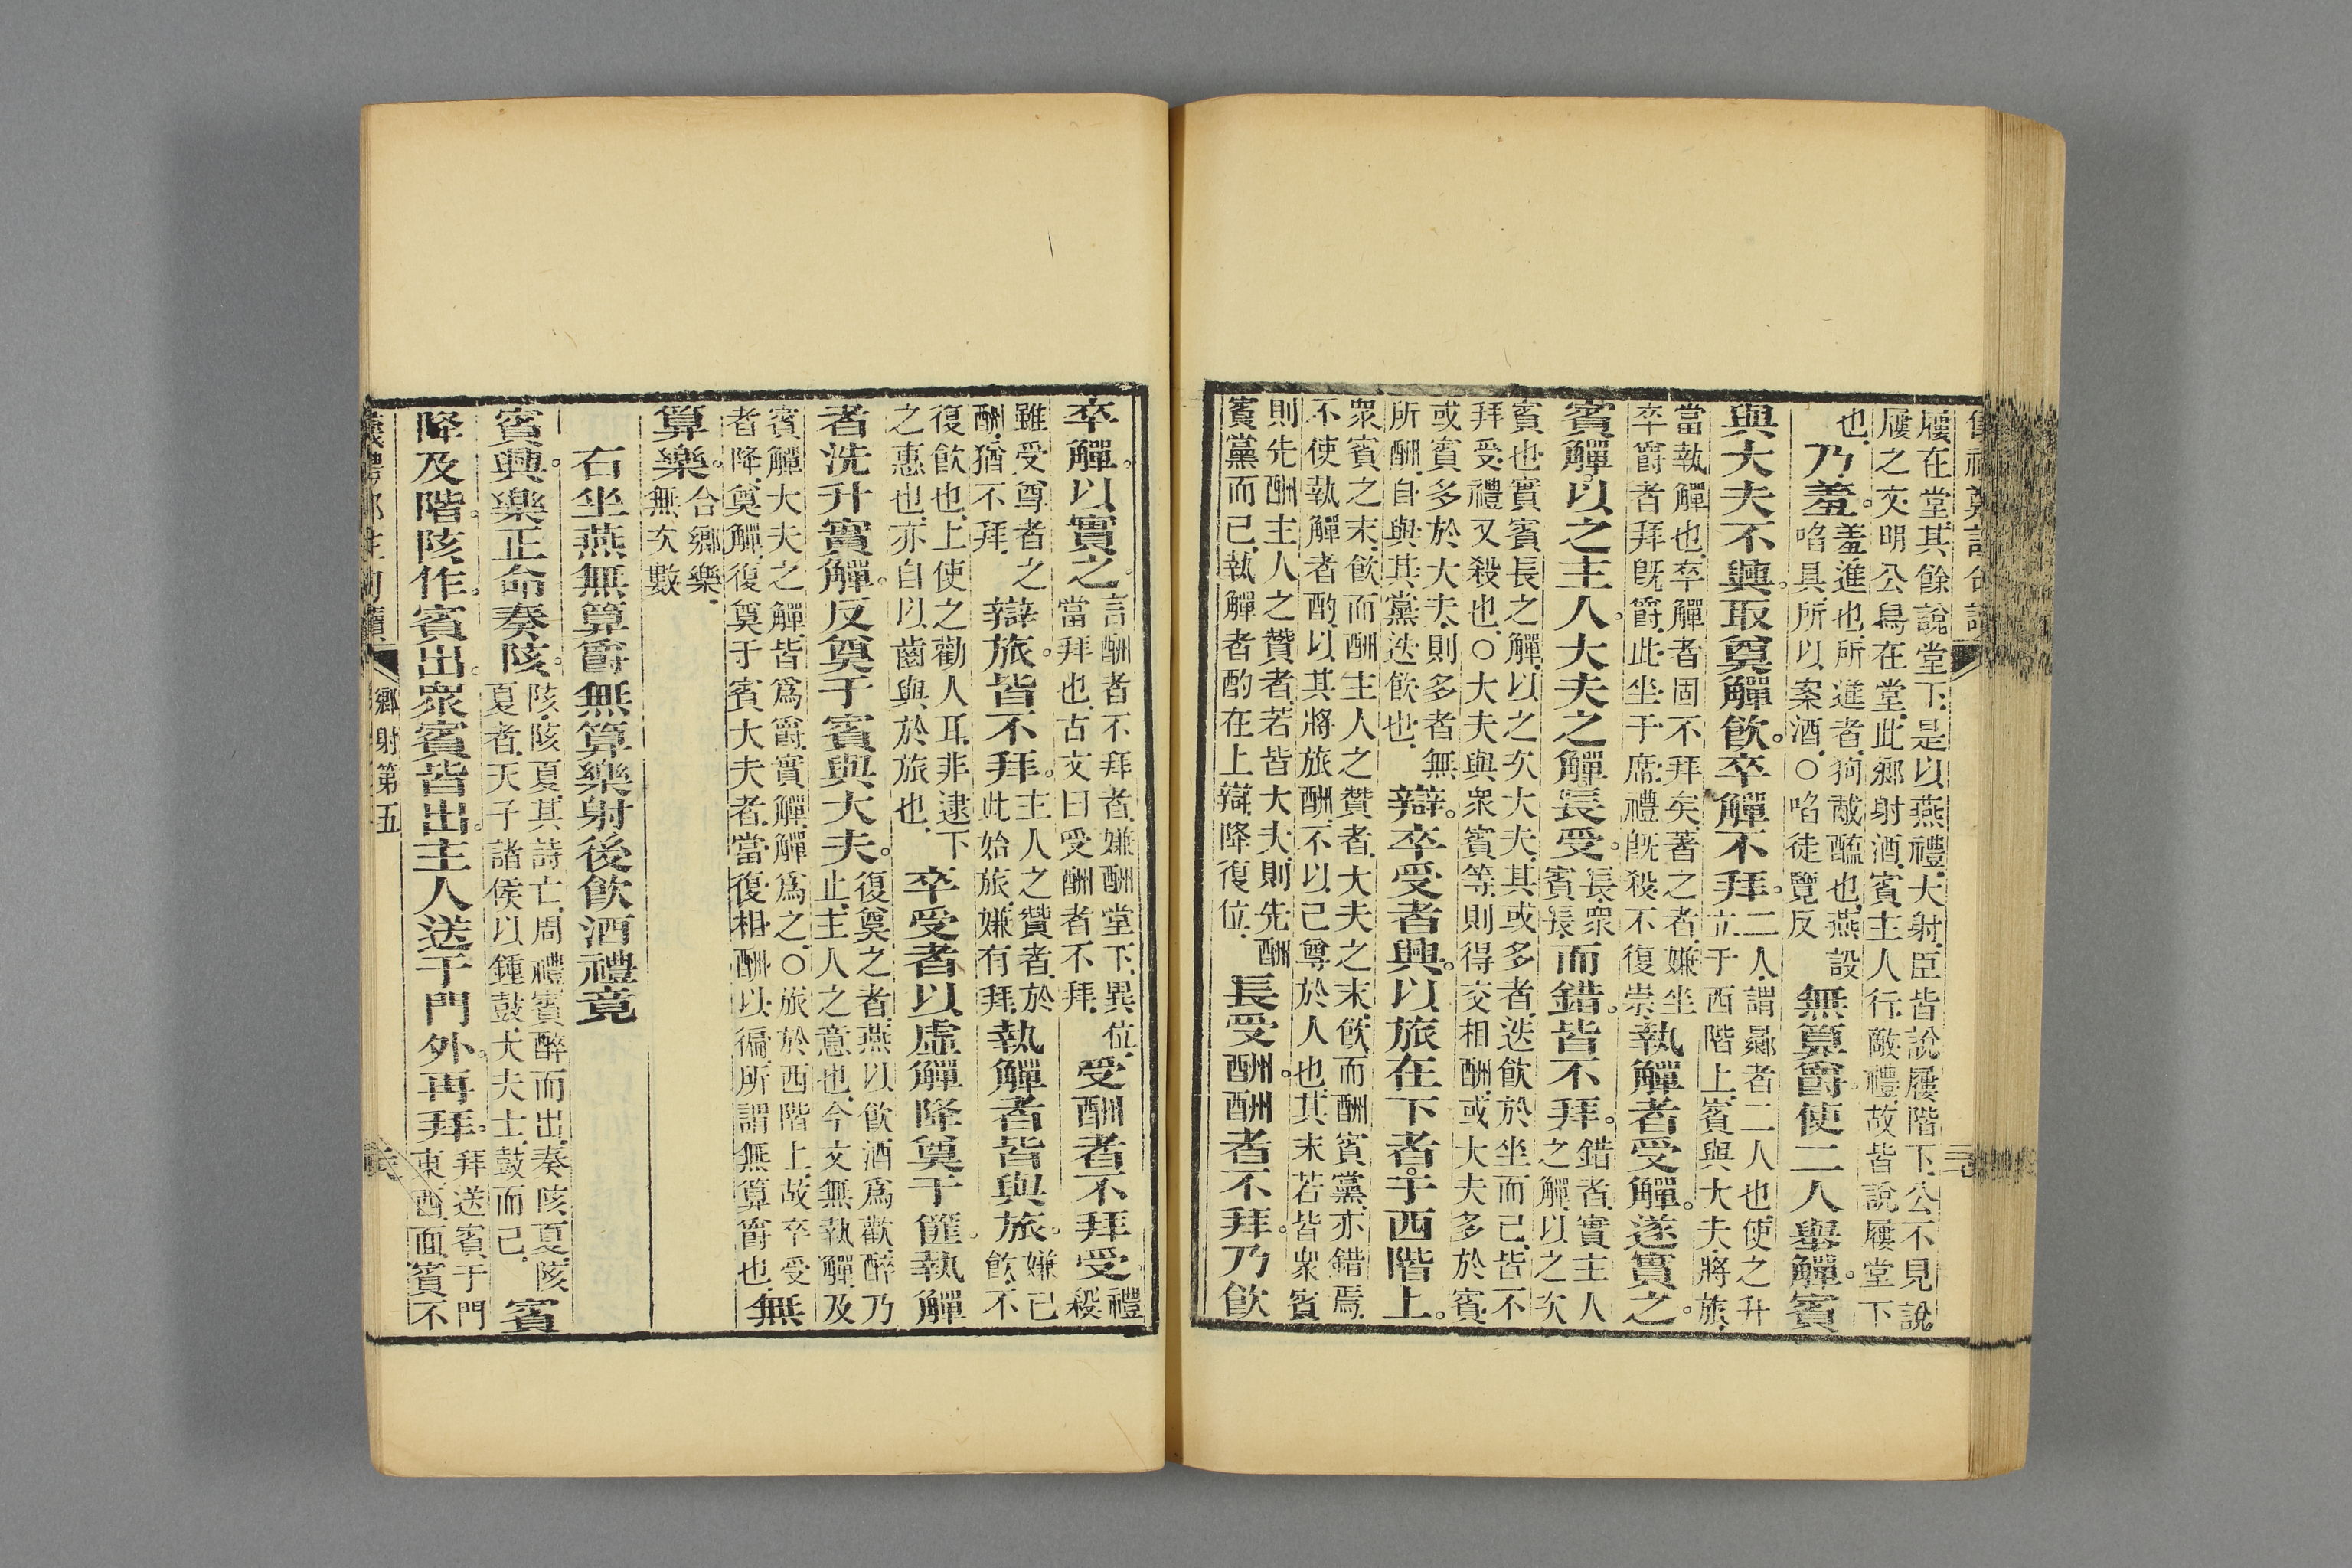 屨在堂其餘說堂下是以燕禮大射臣皆說屨階下公不見說
屨之文明公舄在堂此鄉射酒賓主人行敵禮故皆說屨堂下
也 乃羞。羞進也所進者狗胾醢也燕設啗具所以案酒○啗徒覽反 無算爵。使二人舉觶。賓
與大夫不興取奠觶飲。卒觶不拜。二人謂曏者二人也使之升立于西階上賓與大夫將旅
當執觶也卒觶者固不拜矣著之者嫌坐卒爵者拜旣爵此坐于席禮旣殺不復崇 執觶者受觶。遂實之。
賓觶以之主人。大夫之觶長受。長衆賓長 而錯。皆不拜。錯者實主人之觶以之次
賓也實賓長之觶以之次大夫其或多者迭飲於坐而已皆不
拜受禮又殺也○大夫與衆賓等則得交相酬或大夫多於賓
或賓多於大夫則多者無所酬自與其黨迭飲也 辯。卒受者興。以旅在下者于西階上。
衆賓之末飲而酬主人之贊者大夫之末飲而酬賓黨亦錯焉
不使執觶者酌以其將旅酬不以己尊於人也其末若皆衆賓
則先酬主人之贊者若皆大夫則先酬賓黨而已執觶者酌在上辯降復位 長受酬。酬者不拜。乃飲
卒觶。以實之。言酬者不拜者嫌酬堂下異位當拜也古文曰受酬者不拜 受酬者不拜受。禮殺
雖受尊者之酬猶不拜 辯旅。皆不拜。主人之贊者於此始旅嫌有拜 執觶者皆與旅。嫌已飲不
復飲也上使之勸人耳非逮下之惠也亦自以齒與於旅也 卒受者以虛觶降奠于篚。執觶
者洗升實觶。反奠于賓與大夫。復奠之者燕以飲酒爲歡醉乃止主人之意也今文無執觶及
賓觶大夫之觶皆爲爵實觶觶爲之○旅於西階上故卒受
者降奠觶復奠于賓大夫者當復相酬以徧所謂無算爵也 無
算樂。合鄉樂無次數
右坐燕無算爵無算樂射後飲酒禮竟
賓興。樂正命奏陔。陔陔夏其詩亡周禮賓醉而出奏陔夏陔夏者天子諸侯以鍾鼓大夫士鼓而已 賓
降及階。陔作。賓出。衆賓皆出。主人送于門外。再拜。拜送賓于門東西面賓不
鄉射第五